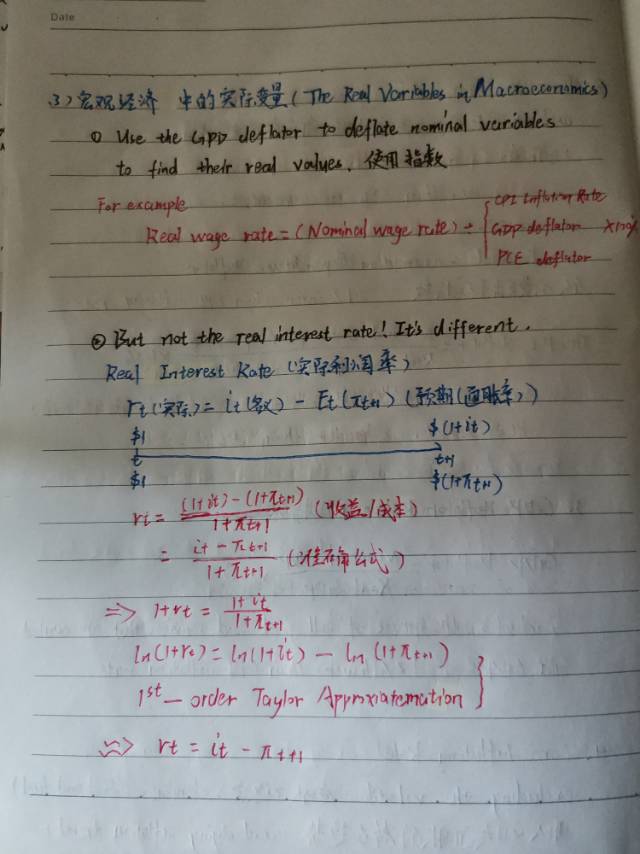 Date
3) 宏观经济 中的实际变量 (The Real Variables in Macroeconomics)
① Use the GDP deflator to deflate nominal variables
to find their real values. 使用指数
For example
CPI Inflation Rate
Real wage rate = (Nominal wage rate) ÷ { GDP deflator ×100%
PCE deflator
② But not the real interest rate! It's different.
Real Interest Rate (实际利润率)
rt(实际) = it(名义) - Et(πt+1) (预期(通胀率))
$1 $(1+it)
t t+1
$1 $(1+πt+1)
ri = (1+it)-(1+πt+1) / 1+πt+1 (收益/成本)
= it - πt+1 / 1+πt+1 (准确公式)
=> 1+rt = 1+it / 1+πt+1
ln(1+rt) = ln(1+it) - ln(1+πt+1)
1st-order Taylor Approxiatemation }
≈> rt = it - πt+1